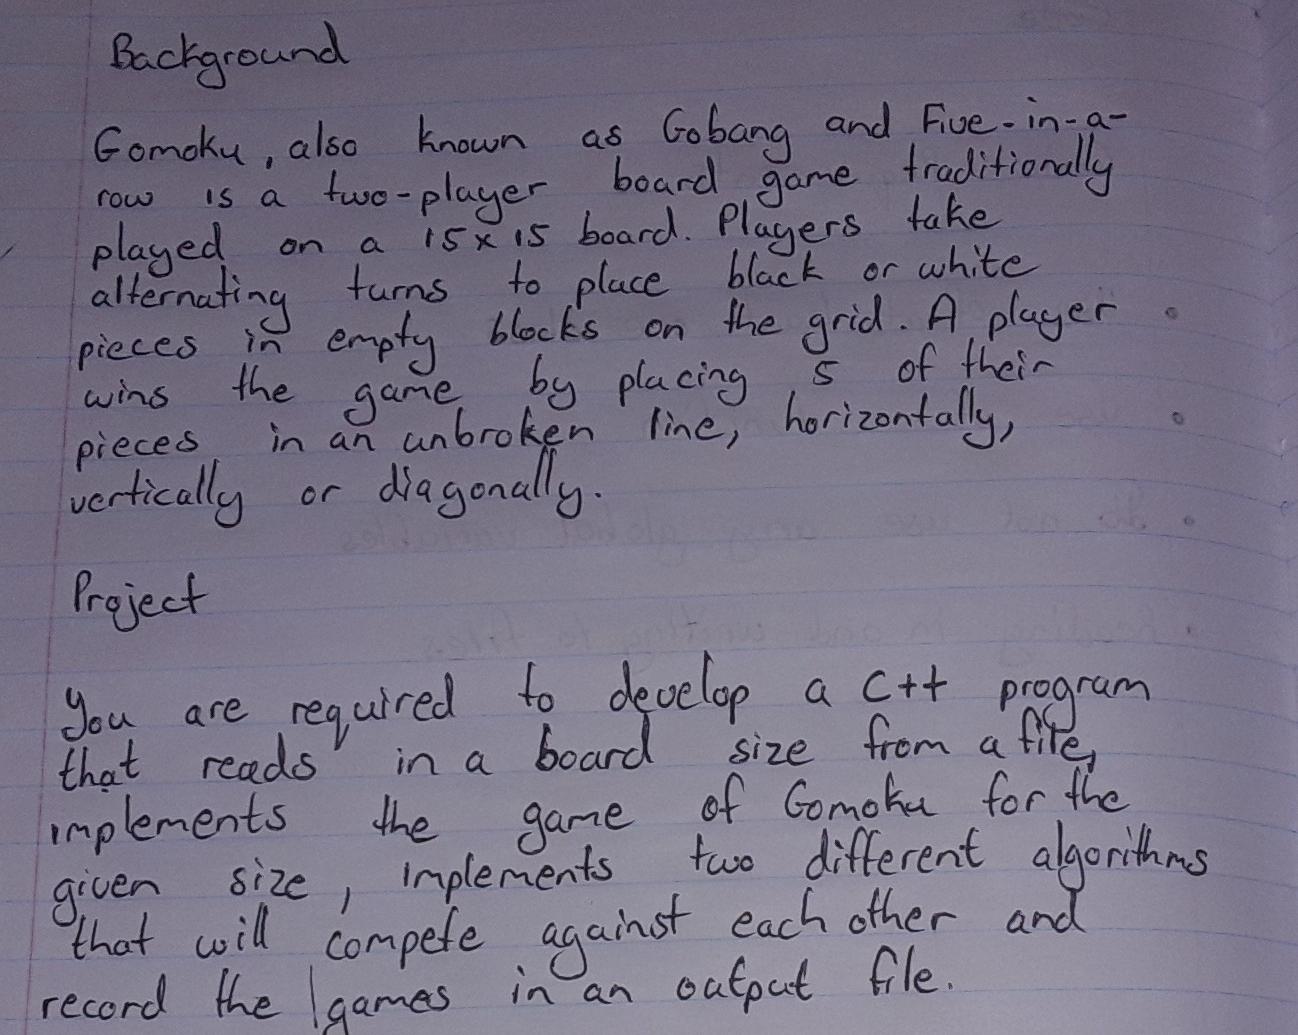 Background
Gomoku, also known as Gobang and Five-in-a-
row is a two-player board game traditionally
played on a 15x15 board. Players take
alternating turns to place black or white
pieces in empty blocks on the grid. A player
wins the game by placing 5 of their
pieces in an unbroken line, horizontally,
vertically or diagonally.
Project
You are required to develop a C++ program
that reads in a board size from a file,
implements the game of Gomoku for the
given size, implements two different algorithms
that will compete against each other and
record the games in an output file.